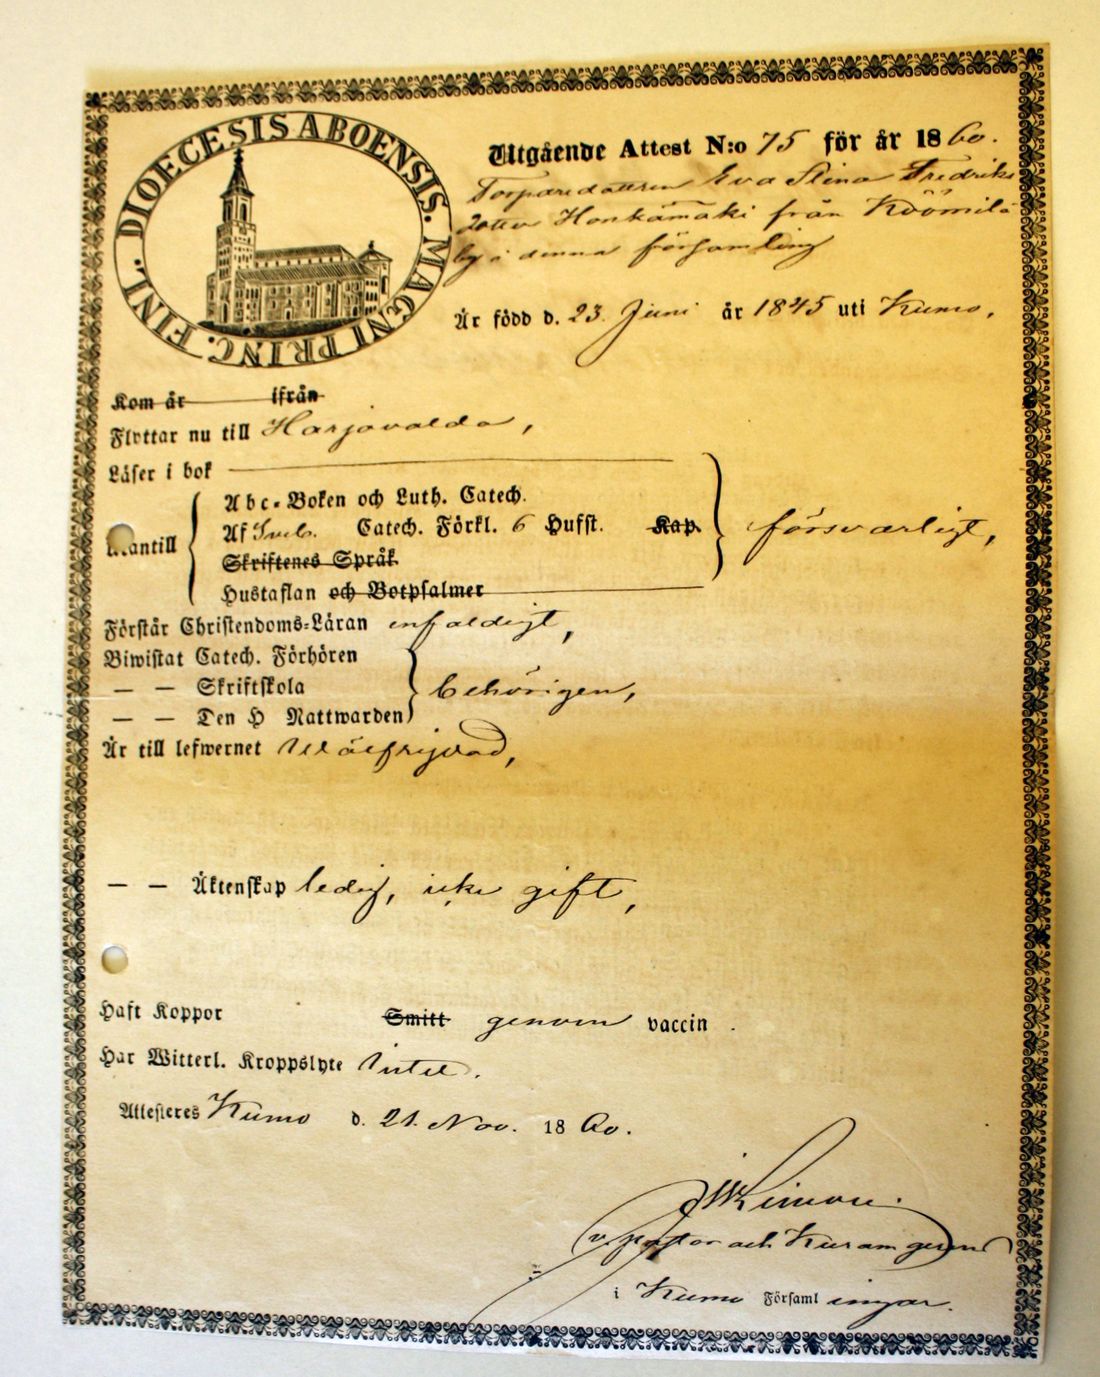 DIOECESIS ABOENSIS. MAGNI PRINC. FINL.
Utgående Attest N:o 75 för år 1860.
Torparedottren Eva Stina Fredriks
dotter Honkamäki från Köömilä
by i denna församling
Är född d. 23. Juni år 1845 uti Kumo,
Kom år ifrån
Flyttar nu till Harjavalda,
Läser i bok
Utantill
Abc-Boken och Luth. Catech.
Af Sveb. Catech. Förkl. 6 Hufst. Kap.
försvarligt,
Skriftenes Språk
Hustaflan och Botpsalmer
Förstår Christendoms-Läran enfaldigt,
Biwistat Catech. Förhören
— — Skriftskola
behörigen,
— — Den H Nattwarden
Är till lefwernet wälfrejdad,
— — Äktenskap ledig, icke gift,
Haft Koppor Smitt genom vaccin .
Har Witterl. Kroppslyte intet.
Attesteres Kumo d. 21. Nov. 1860.
v. pastor och
i Kumo Församl ingar.